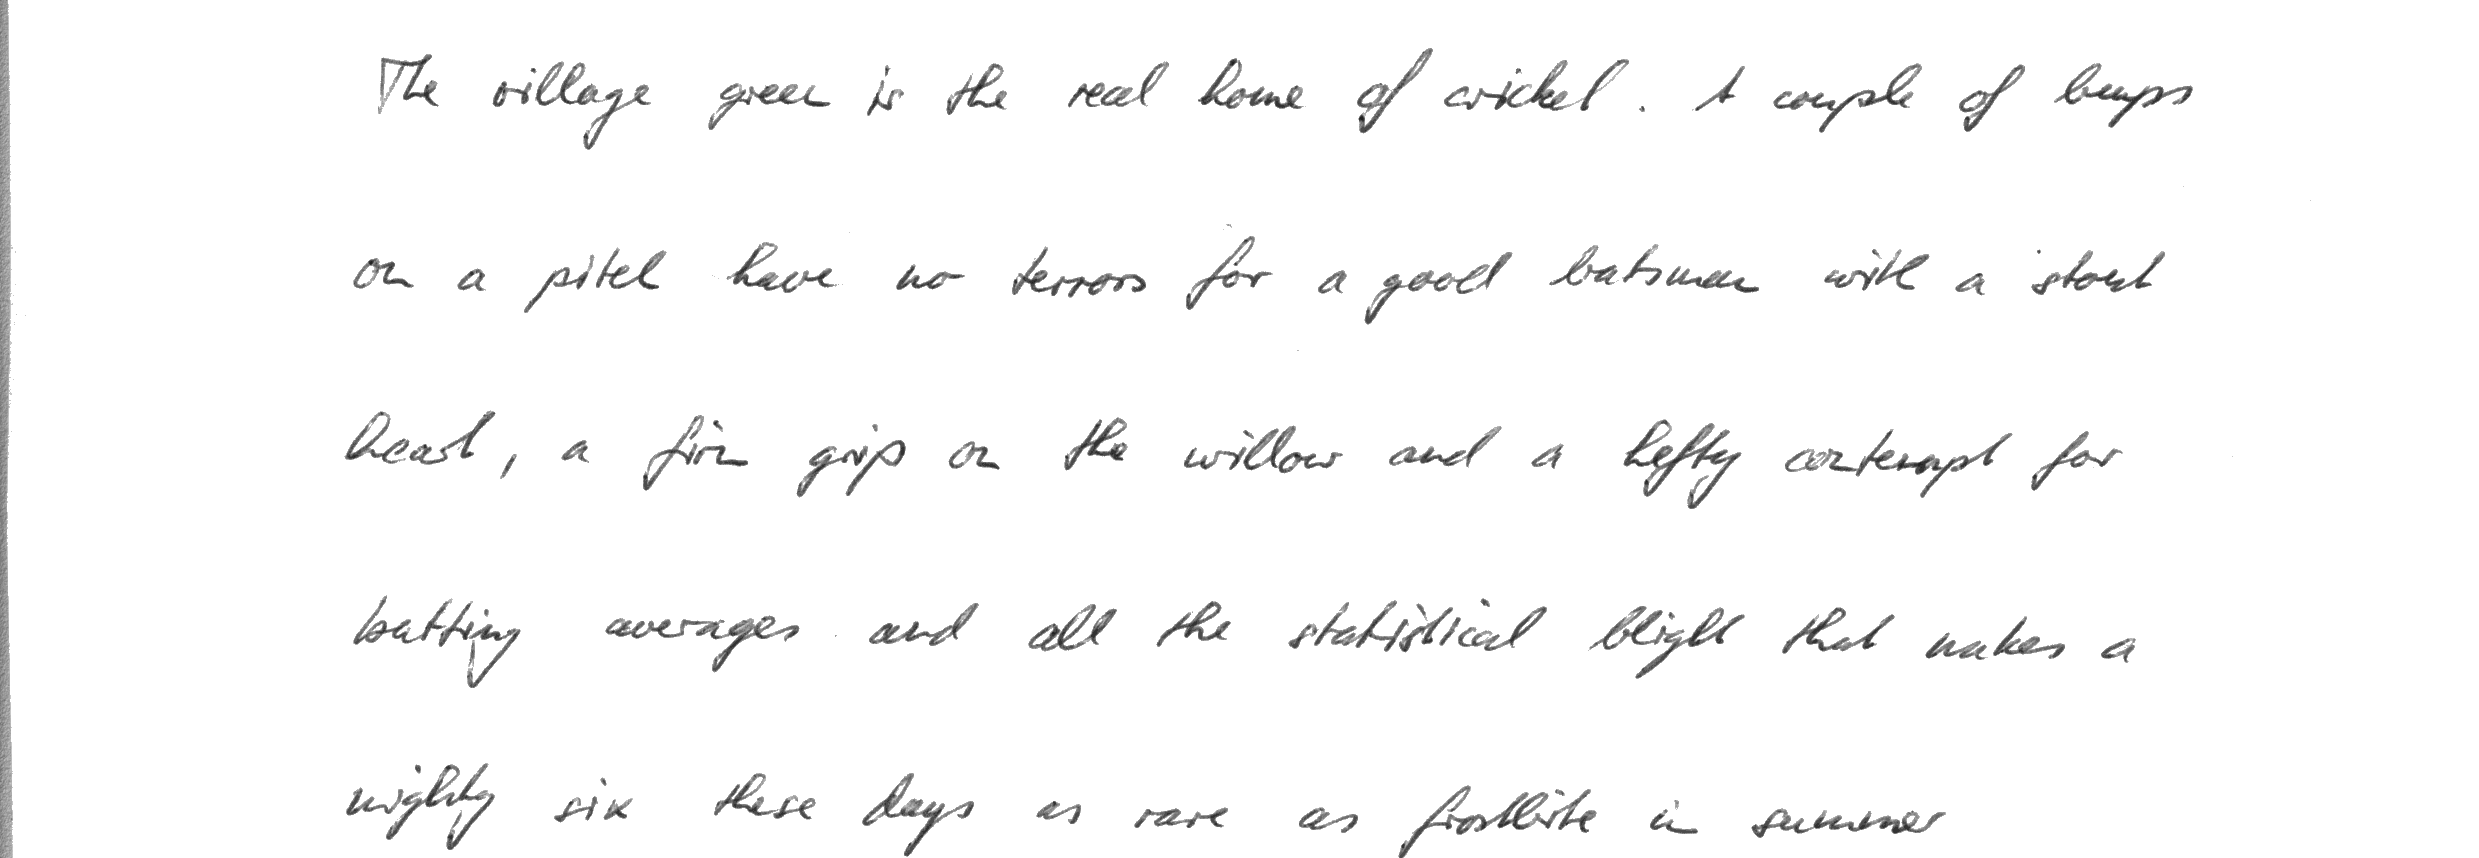 The village green is the real home of cricket. A couple of bumps
on a pitch have no terrors for a good batsman with a stout
heart, a firm grip on the willow and a hefty contempt for
batting averages and all the statistical blight that makes a
mighty six these days as rare as frostbite in summer